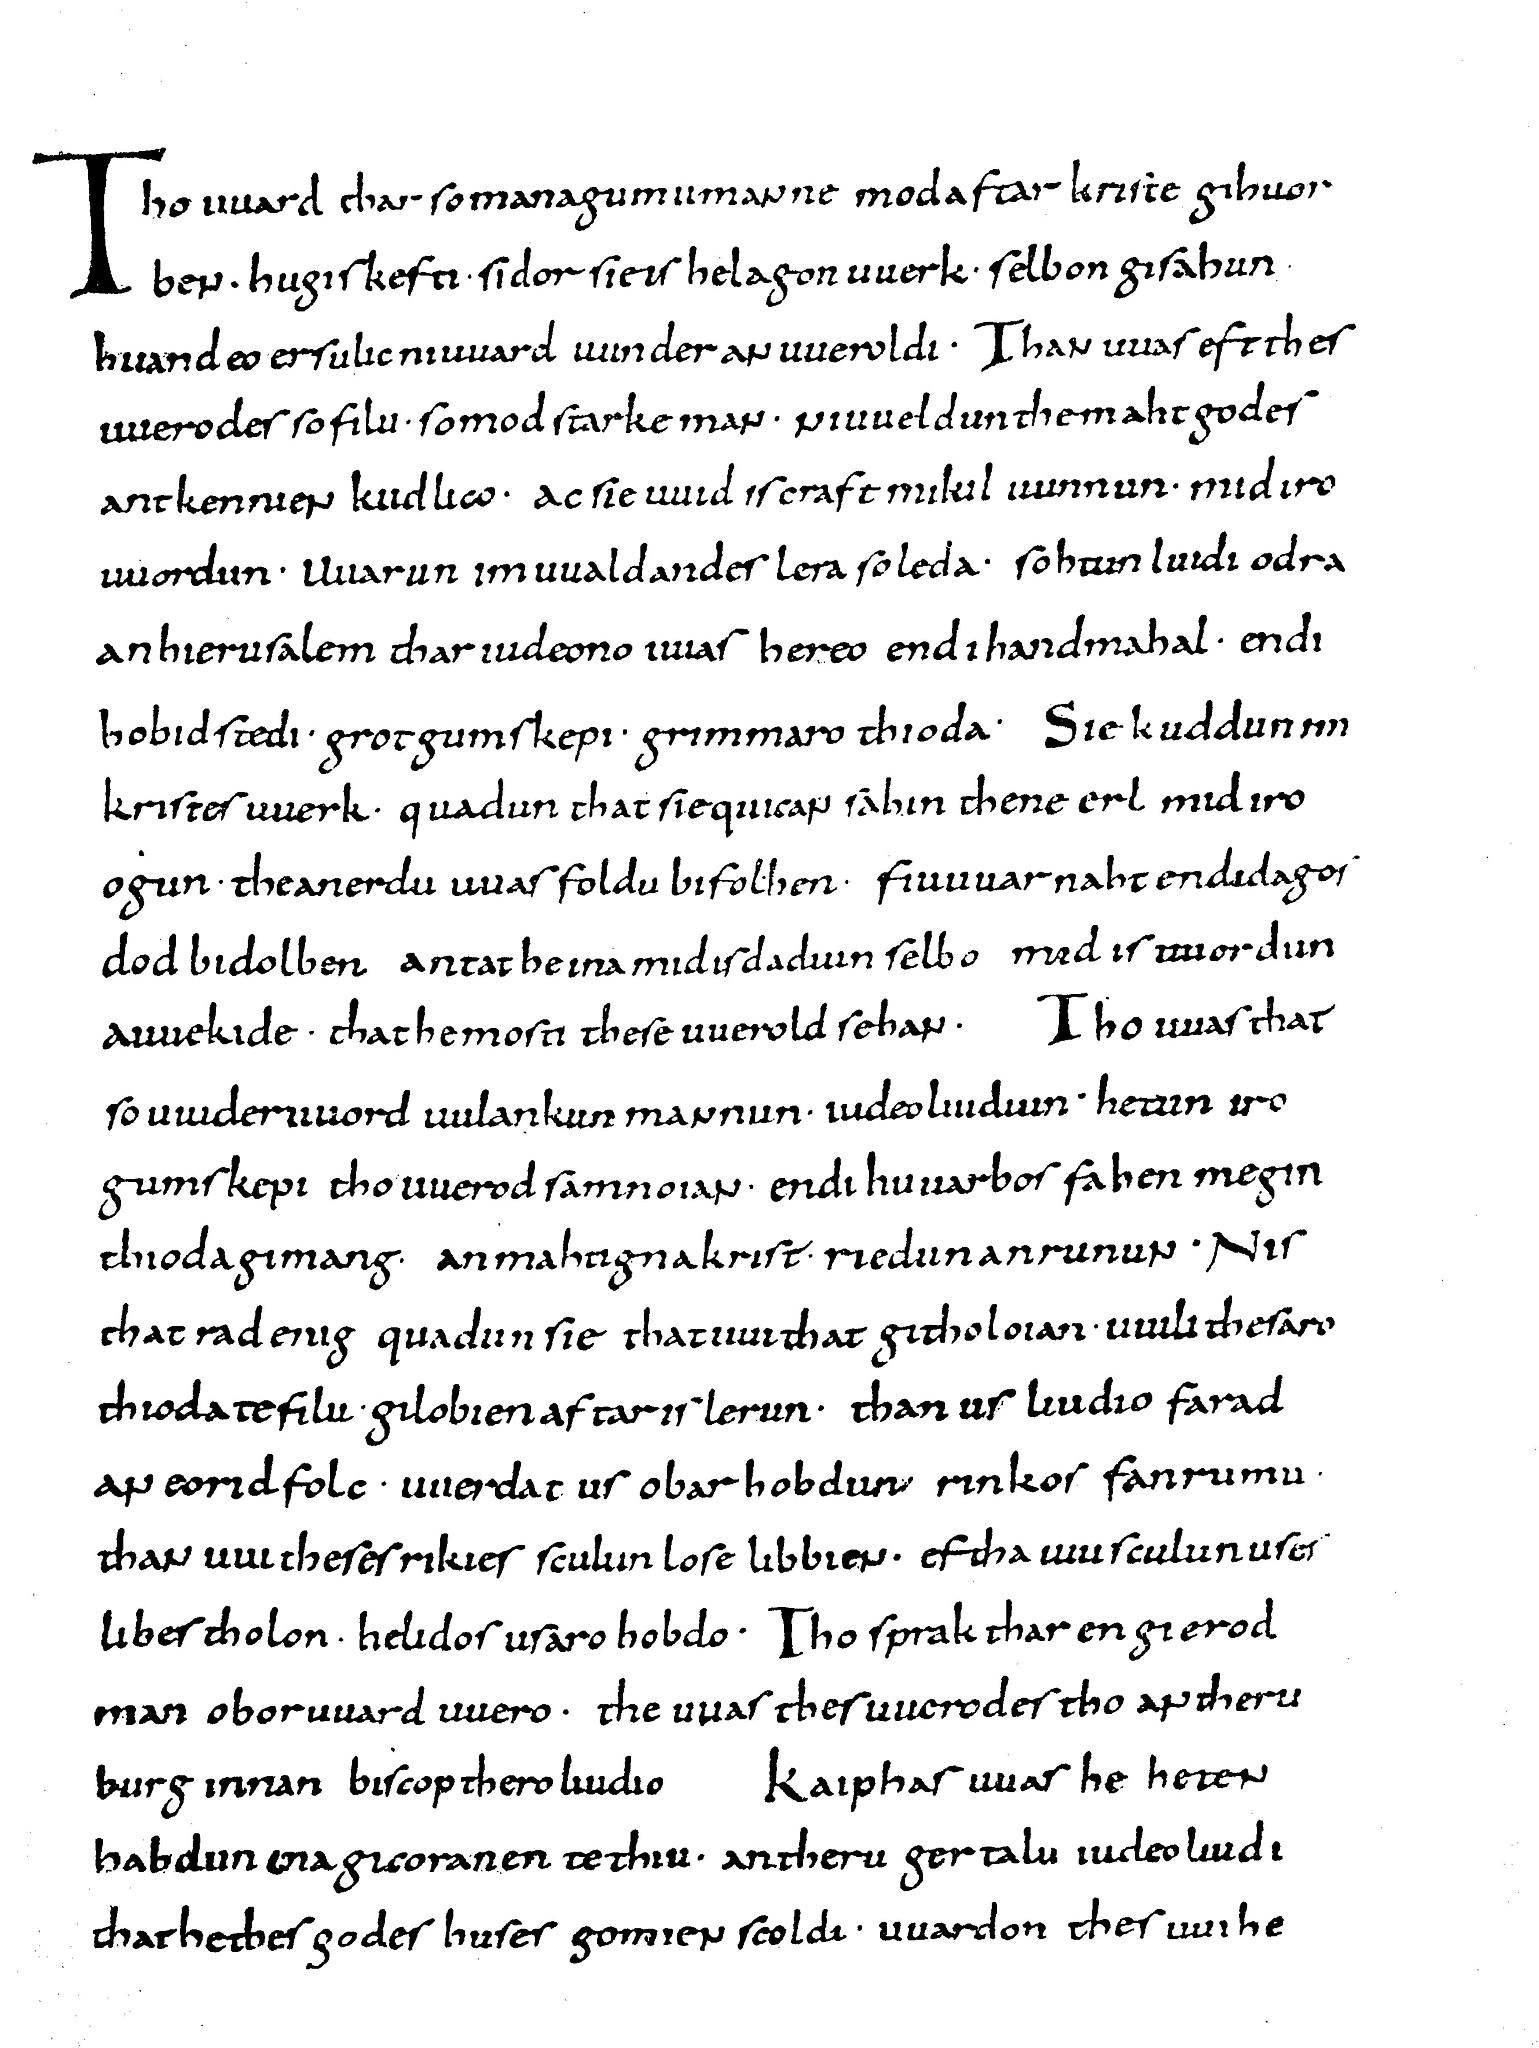 Tho uuard thar so managumu manne mod aftar kriste gihuor
ben · hugiskefti · sidor sie is helagon uuerk · selbon gisahun ·
huand eo er sulic ni uuard uunder an uueroldi · Than uuas eft thes
uuerodes so filu · so mod starke man · ni uueldun the maht godes
antkennien kudlico · ac sie uuid is craft mikil uunnun · mid iro
uuordun · Uuarun im uualdandes lera so leda · sohtun liudi odra
an hierusalem thar iudeono uuas hereo endi handmahal · endi
hobid stedi · grot gumskepi · grimmaro thioda · Sie kuddun im
kristes uuerk · quadun that sie quican sahin thene erl mid iro
ogun · the an erdu uuas foldu bifolhen · fiuuuar naht endi dagos
dod bidolben antat he ina mid is daduin selbo mid is uuordun
auuekide · that he mosti these uuerold sehan · Tho uuas that
so uuideruuord uulankun mannun · iudeo liudiun · hetun iro
gumskepi tho uuerod samnoian · endi huuarbos fahen megin
thioda gimang · an mahtigna krist · riedun an runun · Nis
that rad enig quadun sie that uui that githoloian · uuili thesaro
thioda te filu · gilobien aftar is lerun · than us liudio farad
an eoridfolc · uuerdat us obar hobdun rinkos fan rumu ·
than uui theses rikies sculun lose libbien · eftha uui sculun uses
libes tholon · helidos usaro hobdo · Tho sprak thar en gierod
man obor uuard uuero · the uuas thes uuerodes tho an theru
burg innan biscop thero liudio Kaiphas uuas he heten
habdun ina gicoranen te thiu · an theru gertalu iudeo liudi
that he thes godes huses gomien scoldi · uuardon thes uuihe